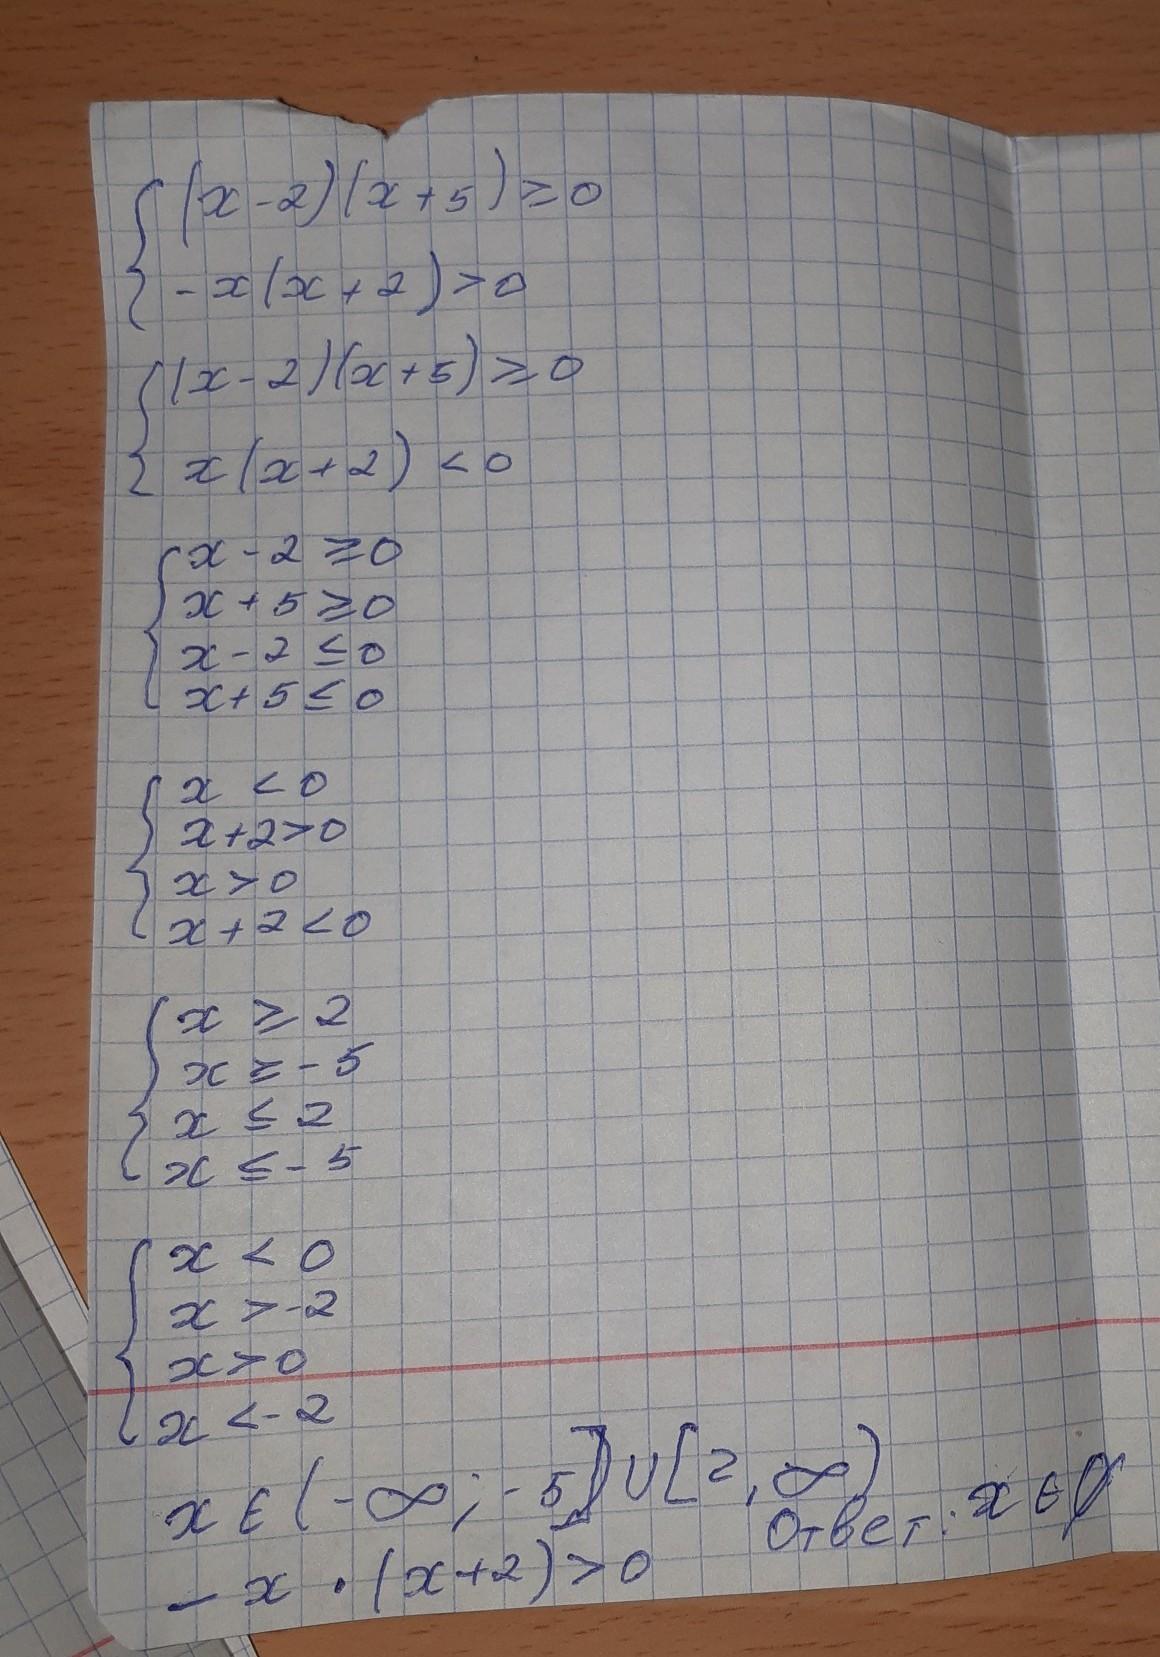 (x-2)(x+5)≥0
-x(x+2)>0
(x-2)(x+5)≥0
x(x+2)<0
x-2≥0
x+5≥0
x-2≤0
x+5≤0
x<0
x+2>0
x>0
x+2<0
x≥2
x≥-5
x≤2
x≤-5
x<0
x>-2
x>0
x<-2
x∈(-∞;-5]∪[2,∞)
Ответ: x∈∅
-x·(x+2)>0